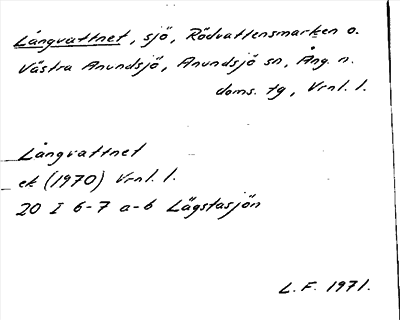 Långvattnet, sjö, Rödvattensmarken o.
Västra Anundsjö, Anundsjö sn, Ång. n.
doms. tg, Vrnl. l.
Långvattnet
ek (1970) Vrnl. l.
20 I 6-7 a-b Lägstasjön
L.F. 1971.